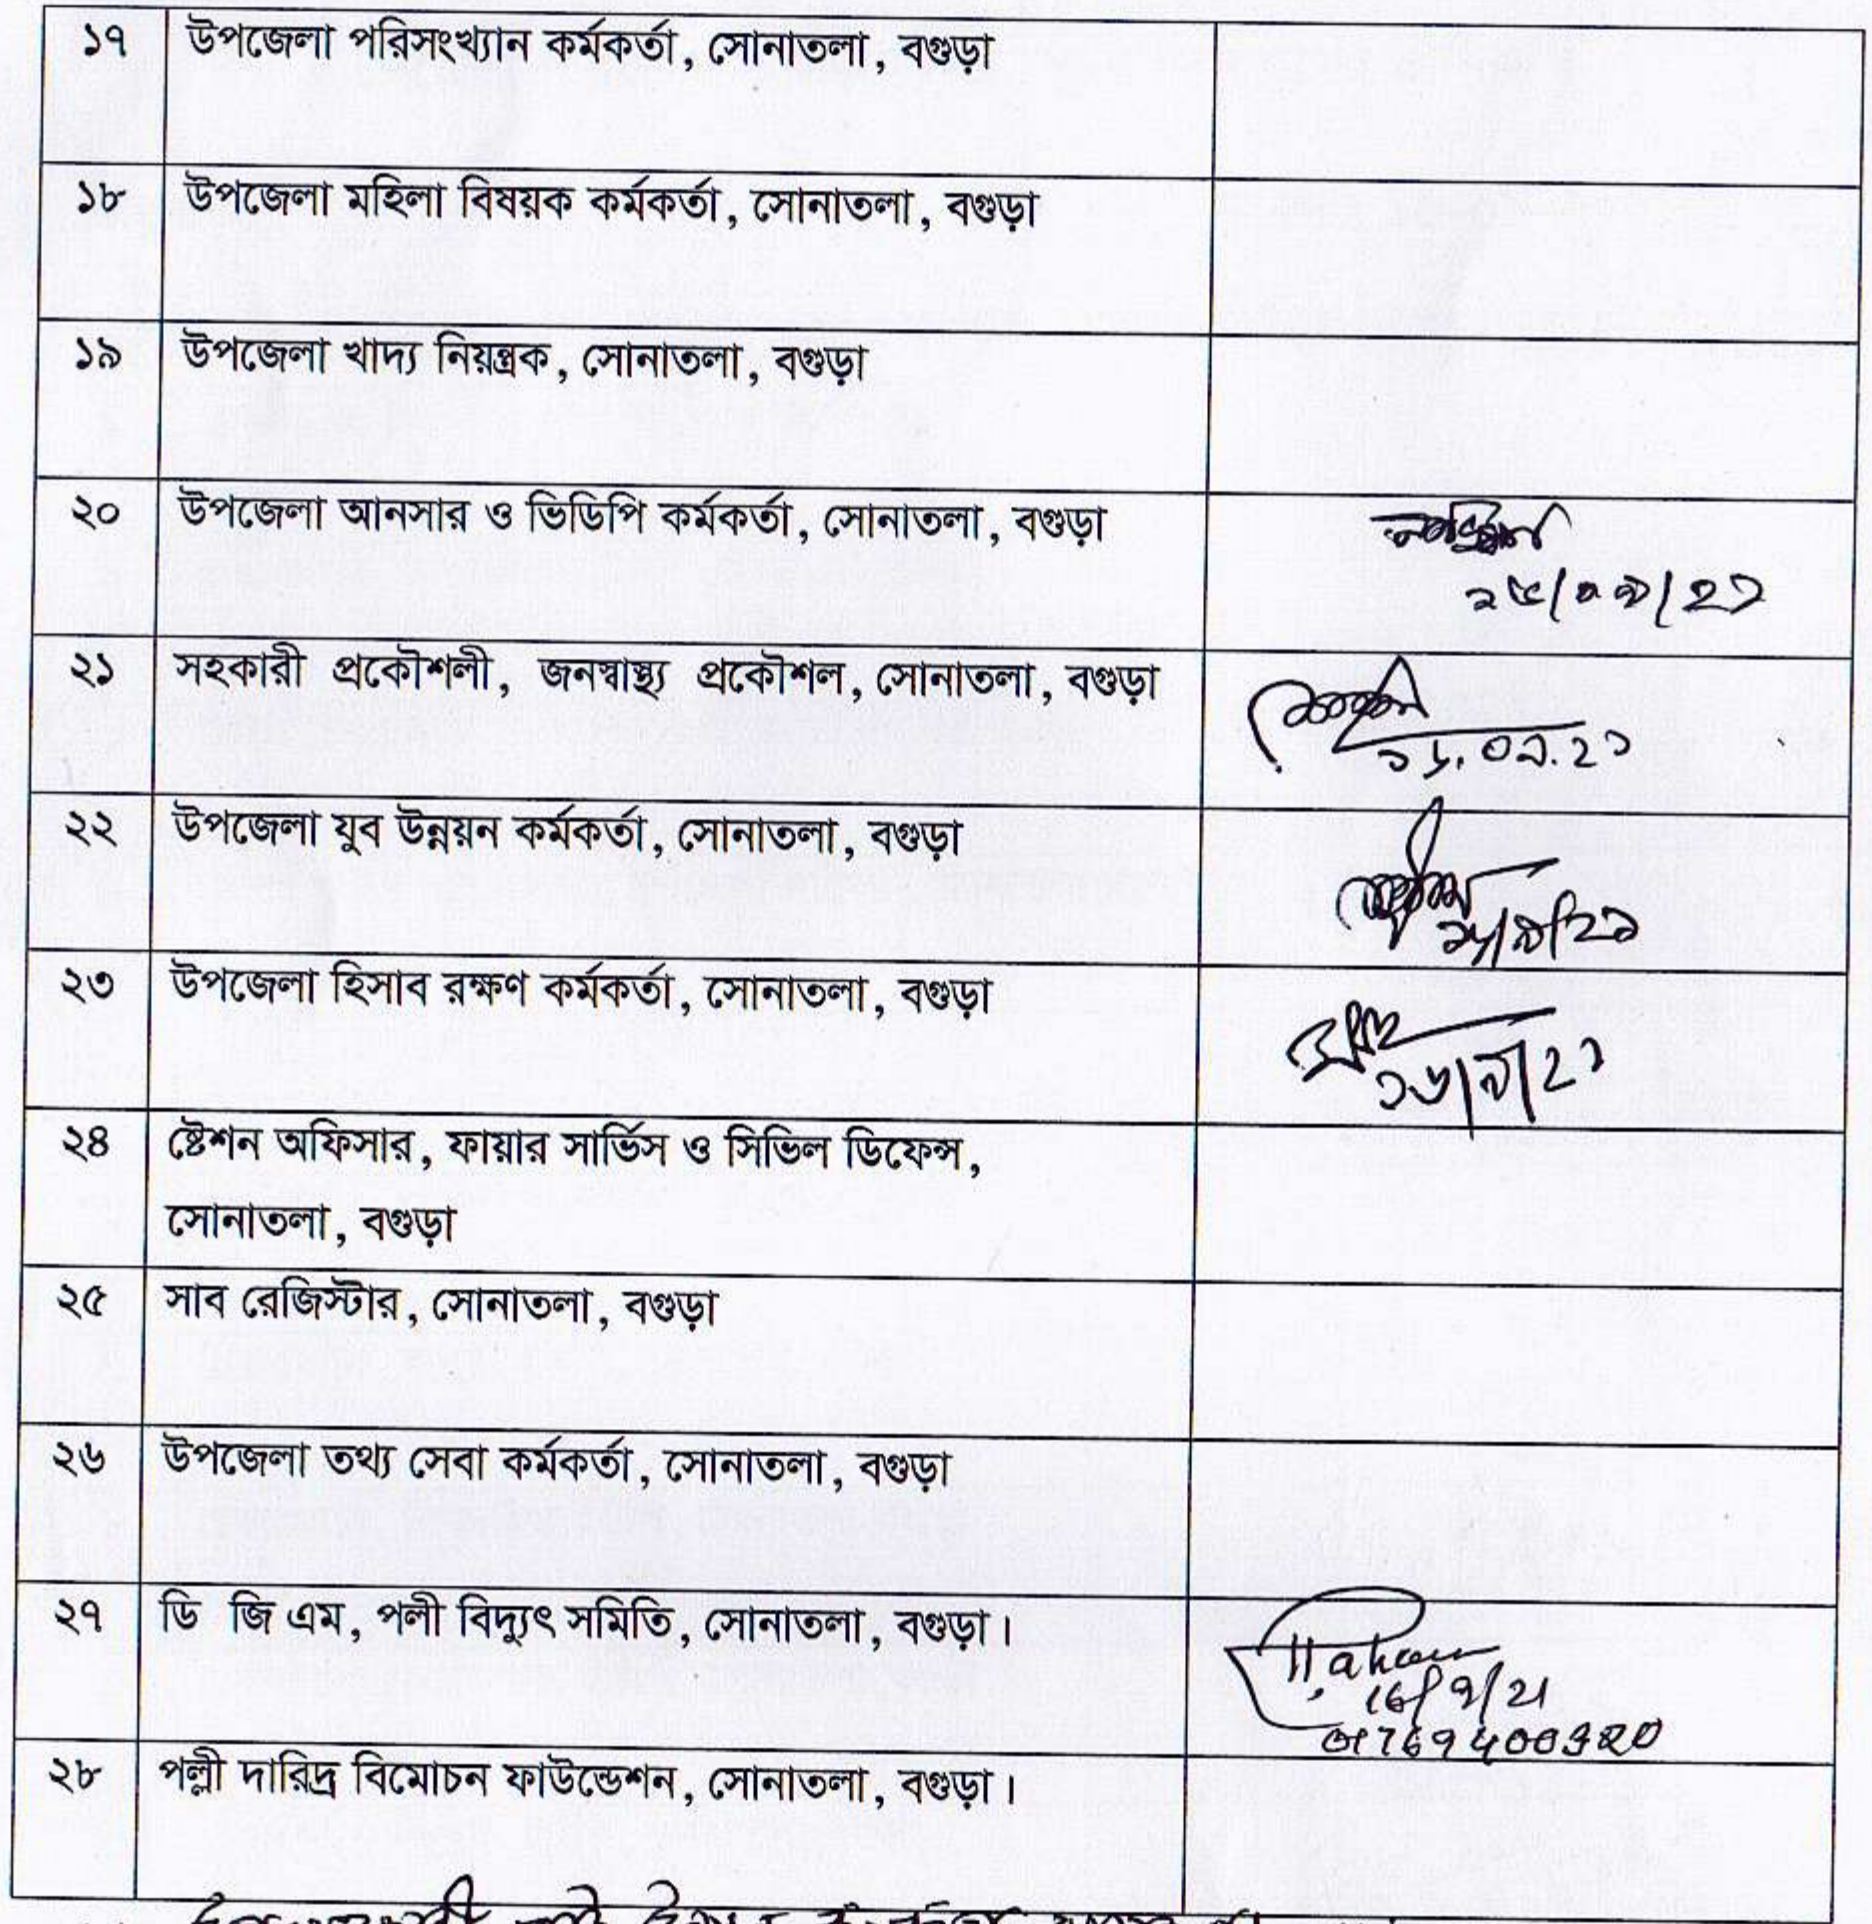 ১৭ উপজেলা পরিসংখ্যান কর্মকর্তা, সোনাতলা, বগুড়া
১৮ উপজেলা মহিলা বিষয়ক কর্মকর্তা, সোনাতলা, বগুড়া
১৯ উপজেলা খাদ্য নিয়ন্ত্রক, সোনাতলা, বগুড়া
২০ উপজেলা আনসার ও ভিডিপি কর্মকর্তা, সোনাতলা, বগুড়া
২১ সহকারী প্রকৌশলী, জনস্বাস্থ্য প্রকৌশল, সোনাতলা, বগুড়া
১৬.০৯.২১
২২ উপজেলা যুব উন্নয়ন কর্মকর্তা, সোনাতলা, বগুড়া
১৬/৯/২১
২৩ উপজেলা হিসাব রক্ষণ কর্মকর্তা, সোনাতলা, বগুড়া
১৬/৯/২১
২৪ ষ্টেশন অফিসার, ফায়ার সার্ভিস ও সিভিল ডিফেন্স,
সোনাতলা, বগুড়া
২৫ সাব রেজিস্টার, সোনাতলা, বগুড়া
২৬ উপজেলা তথ্য সেবা কর্মকর্তা, সোনাতলা, বগুড়া
২৭ ডি জি এম, পলী বিদ্যুৎ সমিতি, সোনাতলা, বগুড়া।
16/9/21
২৮ পল্লী দারিদ্র বিমোচন ফাউন্ডেশন, সোনাতলা, বগুড়া।